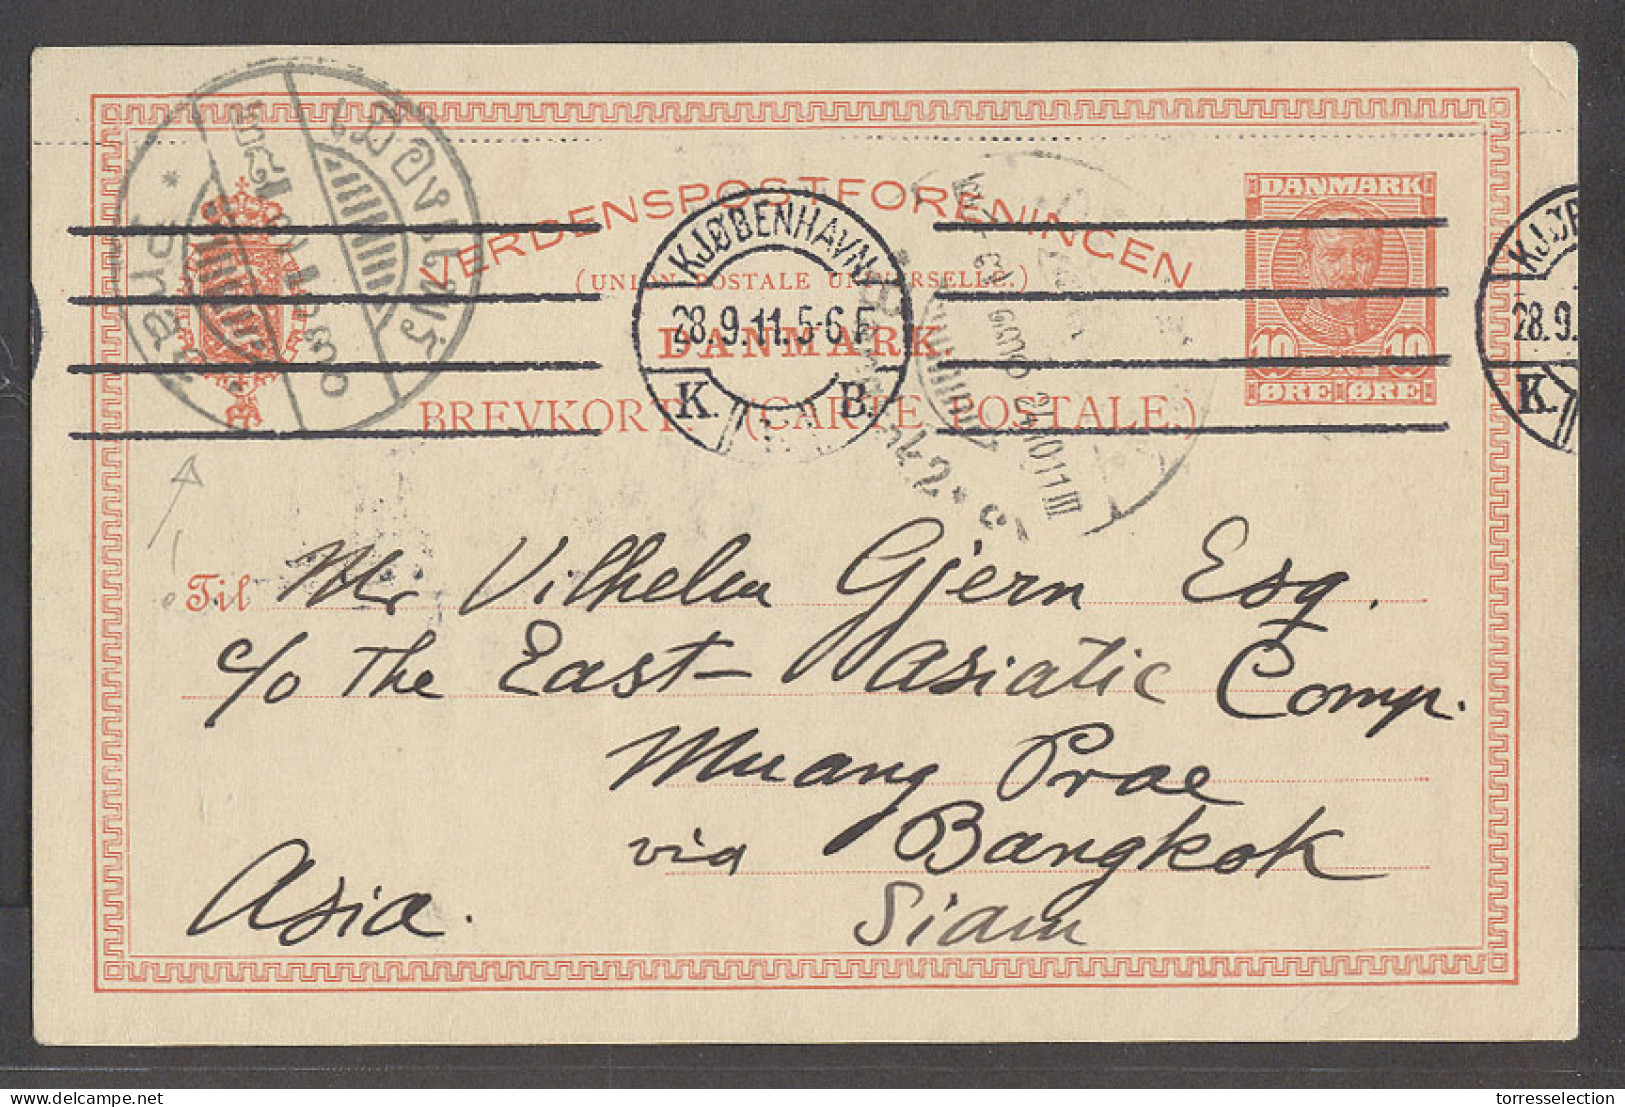 VERDENSPOSTFORENINGEN
(UNION POSTALE UNIVERSELLE.)
DANMARK.
BREVKORT. (CARTE POSTALE.)
DANMARK
10 10
ØRE ØRE
KJØBENHAVN
28.9.11.5-6 F
K. B.
KJØB
28.9.
K.
เมืองแพร่
Præ
24 10 11
Til Mr Vilhelm Gjern Esq.
c/o The East-Asiatic Comp.
Muang Prae
via Bangkok
Siam
Asia.
torresselection